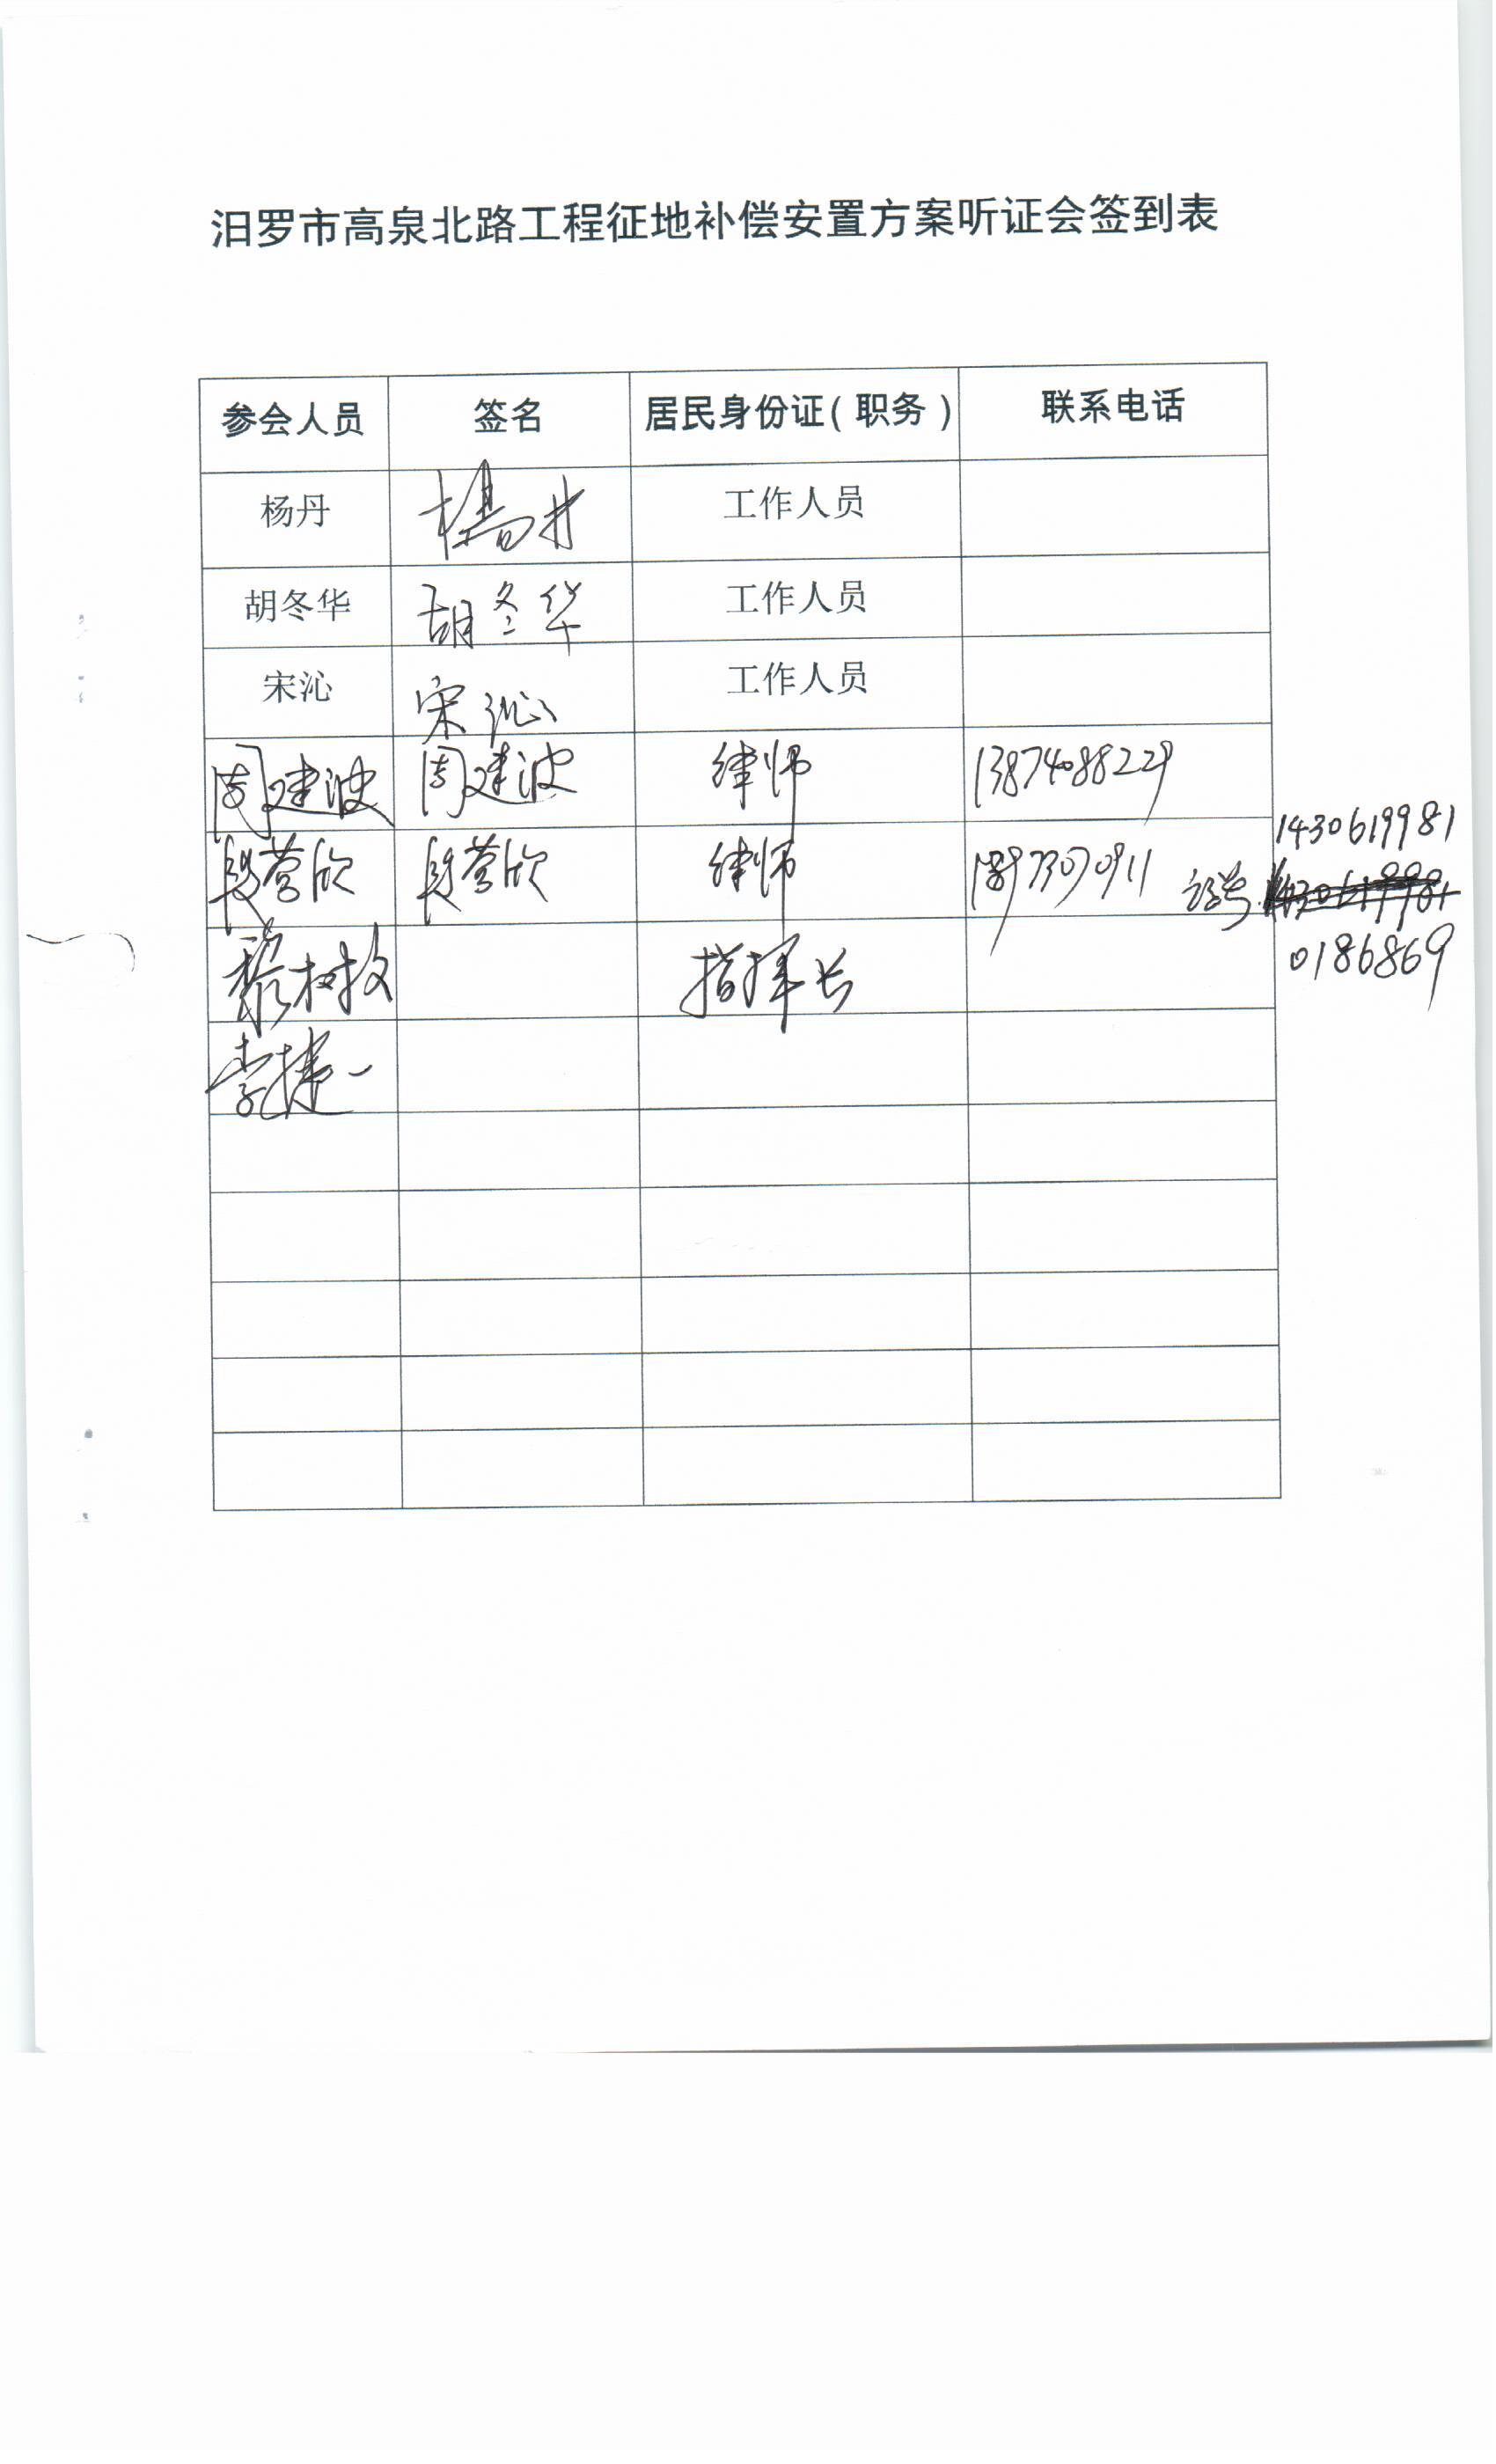 汨罗市高泉北路工程征地补偿安置方案听证会签到表
参会人员 签名 居民身份证(职务) 联系电话
杨丹 杨丹 工作人员
胡冬华 胡冬华 工作人员
宋沁 宋沁 工作人员
周建波 周建波 律师 13874088229
段营欣 段营欣 律师 18973070911 证号 1430619981
0186869
树 指挥长
李捷